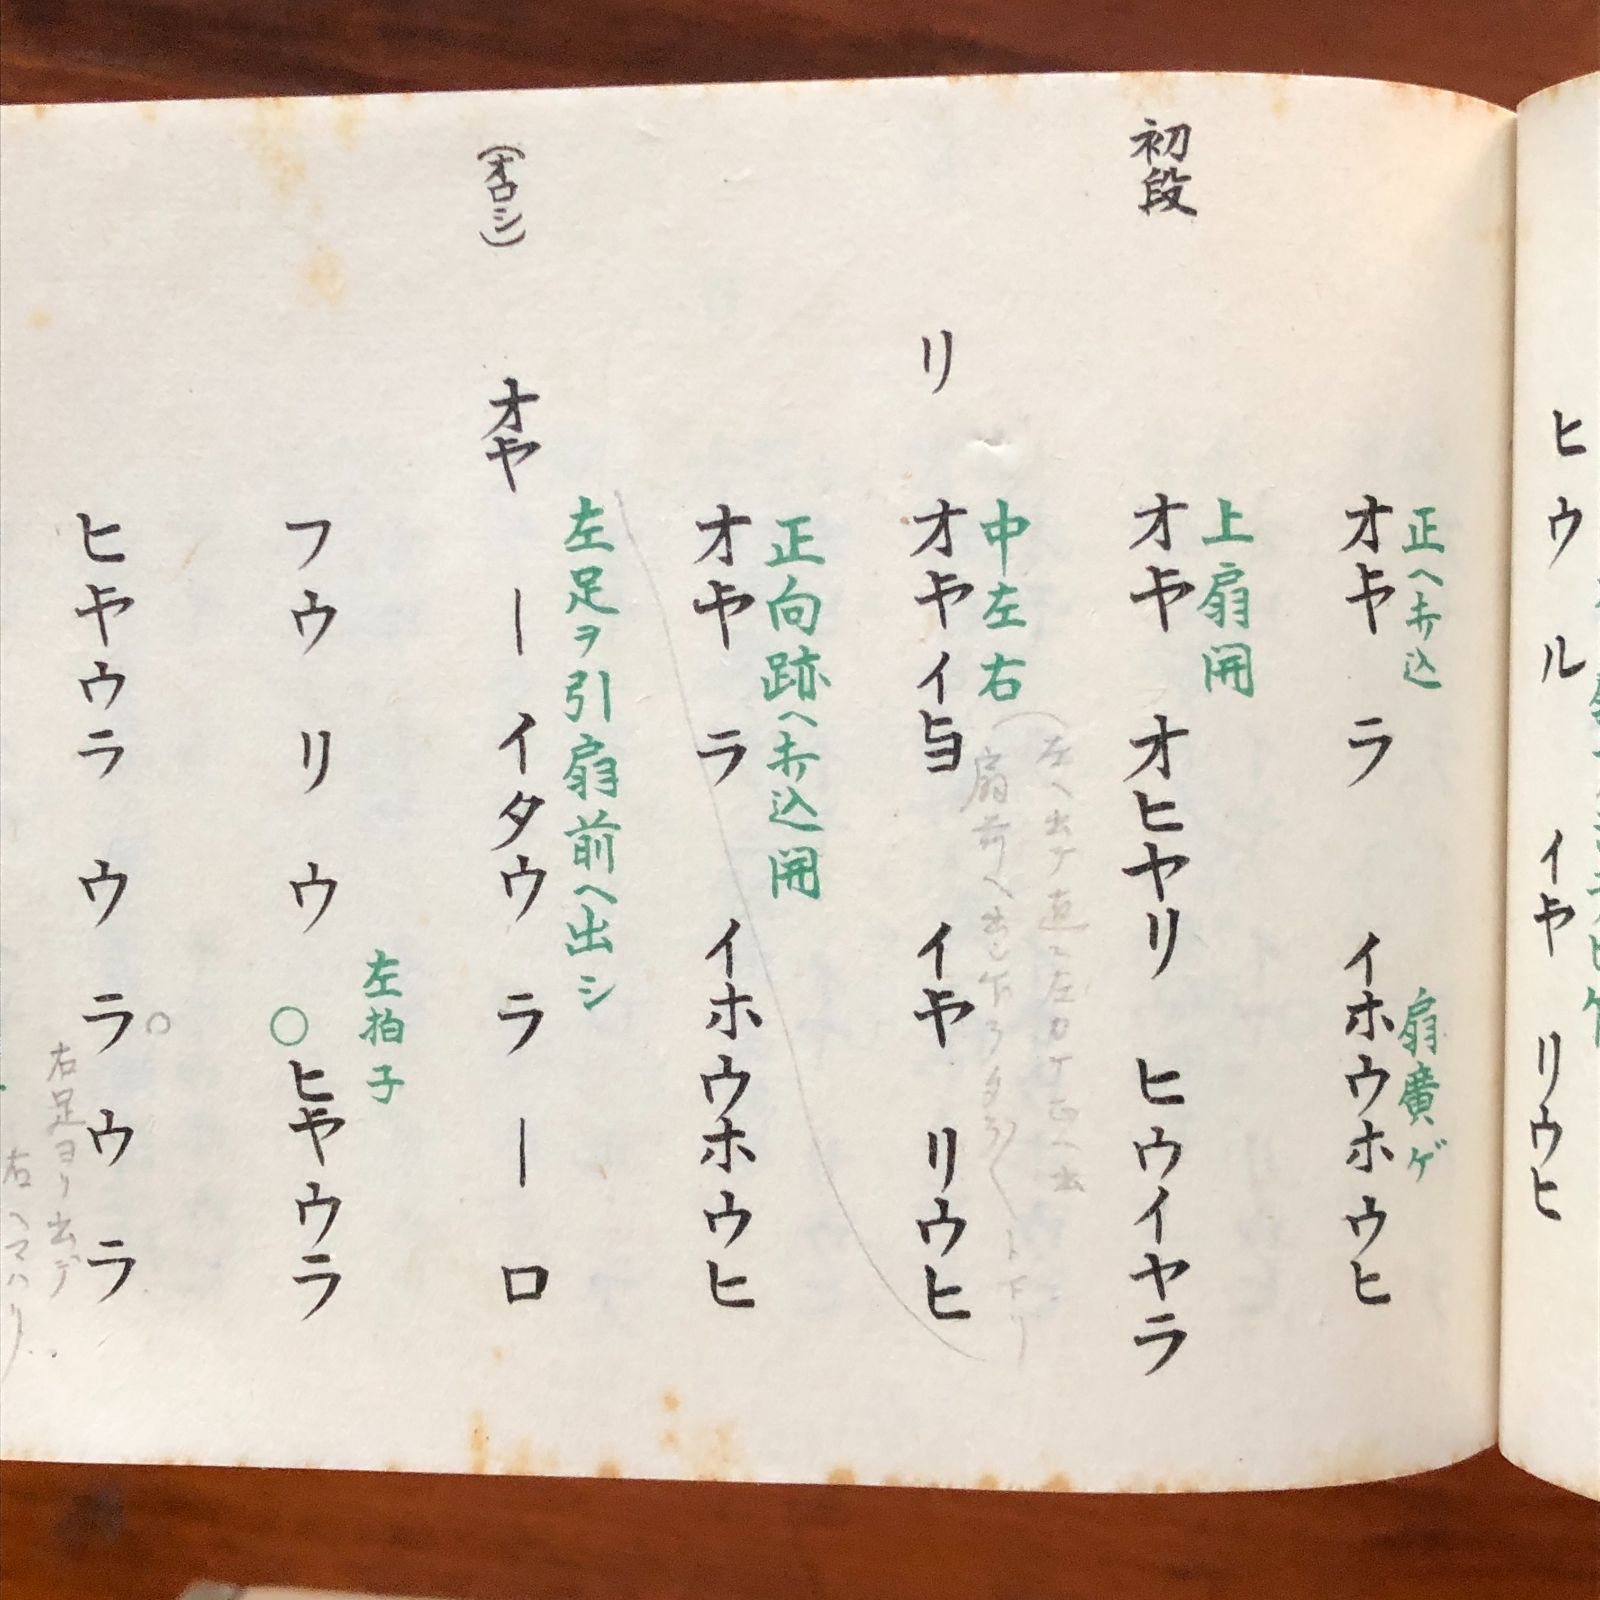 ヒウル イヤ リウヒ
正ヘ打込 扇廣ゲ
オヒヤ ラ イホウホウヒ
初段
上扇開
オヒヤ オヒヤリ ヒウイヤラ
中左右
リ オヒヤイヨ イヤ リウヒ
正向跡ヘ打込開
オヒヤ ラ イホウホウヒ
左足ヲ引扇前ヘ出シ
(オロシ)
オヒヤ ー イタウ ラ ー ロ
左拍子
フウリウ ○ヒヤウラ
ヒヤウラ ウラウラ
右足ヨリ出デ
右ヘマハリ